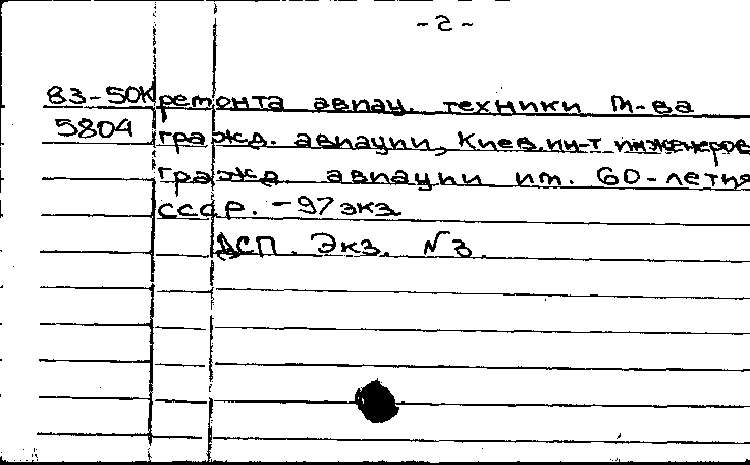 - 2 -
83-50К ремонта авиац. техники М-ва
5804 гражд. авиации, Киев. ин-т инженеров
гражд. авиации им. 60-летия
СССР. - 97 экз.
ДСП. Экз. N 3.